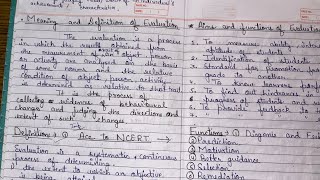 Meaning and Definition of Evaluation
The evaluation is a process
in which the result obtained from
measurement about any person
or activity are analysed on the basis
of some norms and the relative
condition of object person activity
is determined as relative to that trait
It is the process of
collecting evidence of behavioural
changes and judging the directions and
extent of such changes.
Definitions: ① Acc to NCERT. →
Evaluation is a systematic & continuous
process of determining
the extent to which an objective
Aims and functions of Evaluation
1. To measure ability, interest
aptitude of students
2. Identification students
3. Standard for promotion from
grade to another
4. To know learners performance
5. To find out hindrances
6. progress of students and
7. To provide feedback to
Functions: ① Diagnosis and
② Prediction
③ Motivation
④ Better guidance
⑤ Selection
⑥ Remediation